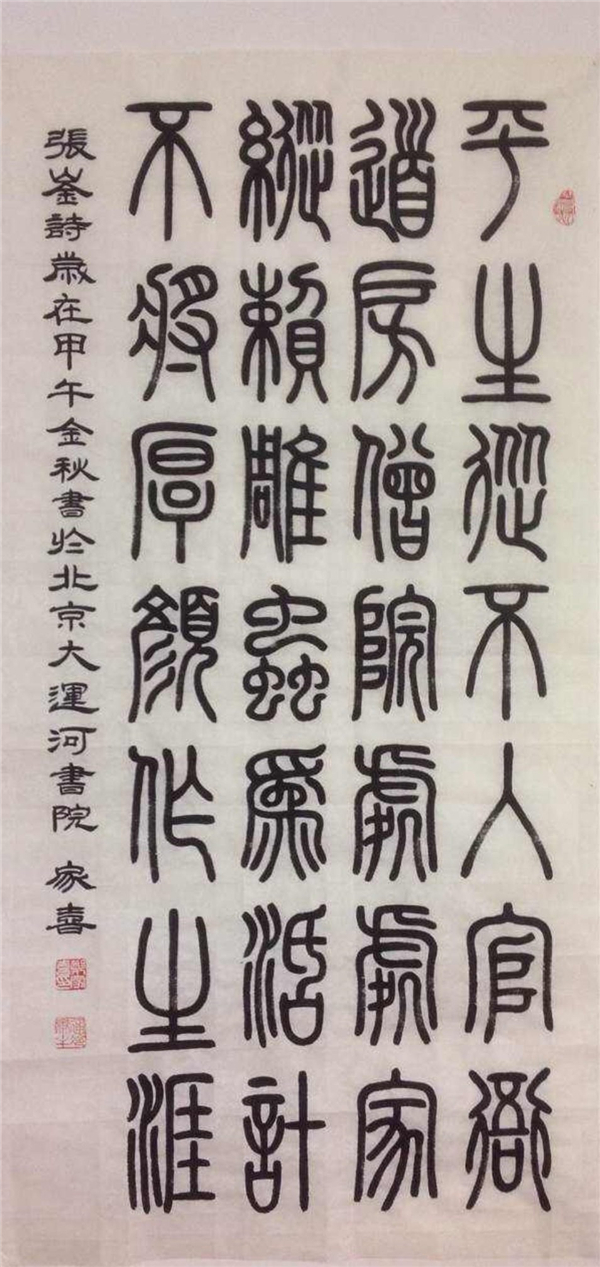 平生從不入官衙
道房僧院處處家
縱賴雕蟲為活計
不將厚顏作生涯
張崟詩歲在甲午金秋書於北京大運河書院 家喜